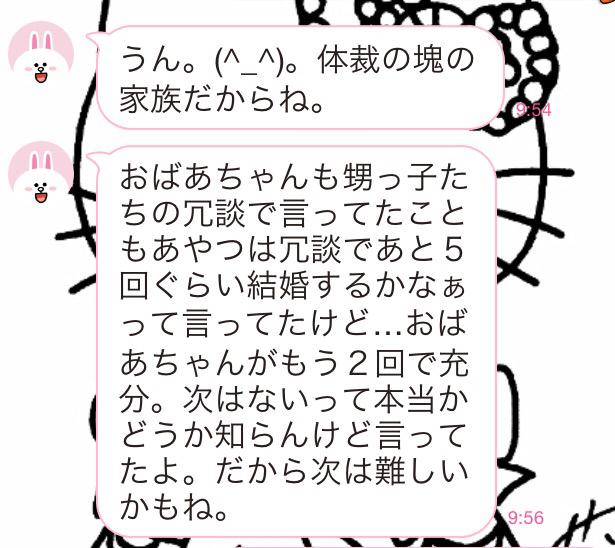 うん。(^_^)。体裁の塊の
家族だからね。
9:54
おばあちゃんも甥っ子た
ちの冗談で言ってたこと
もあやつは冗談であと５
回ぐらい結婚するかなぁ
って言ってたけど…おば
あちゃんがもう２回で充
分。次はないって本当か
どうか知らんけど言って
たよ。だから次は難しい
かもね。
9:56